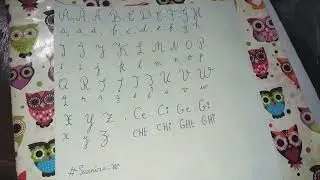 A Ă Â B C D E F G H
a ă â b c d e f g h
I Î J K L M N O P
i î j k l m n o p
Q R S Ș T Ț U V W
q r s ș t ț u v w
X Y Z . Ce Ci Ge Gi
x y z CHE CHI GHE GHI